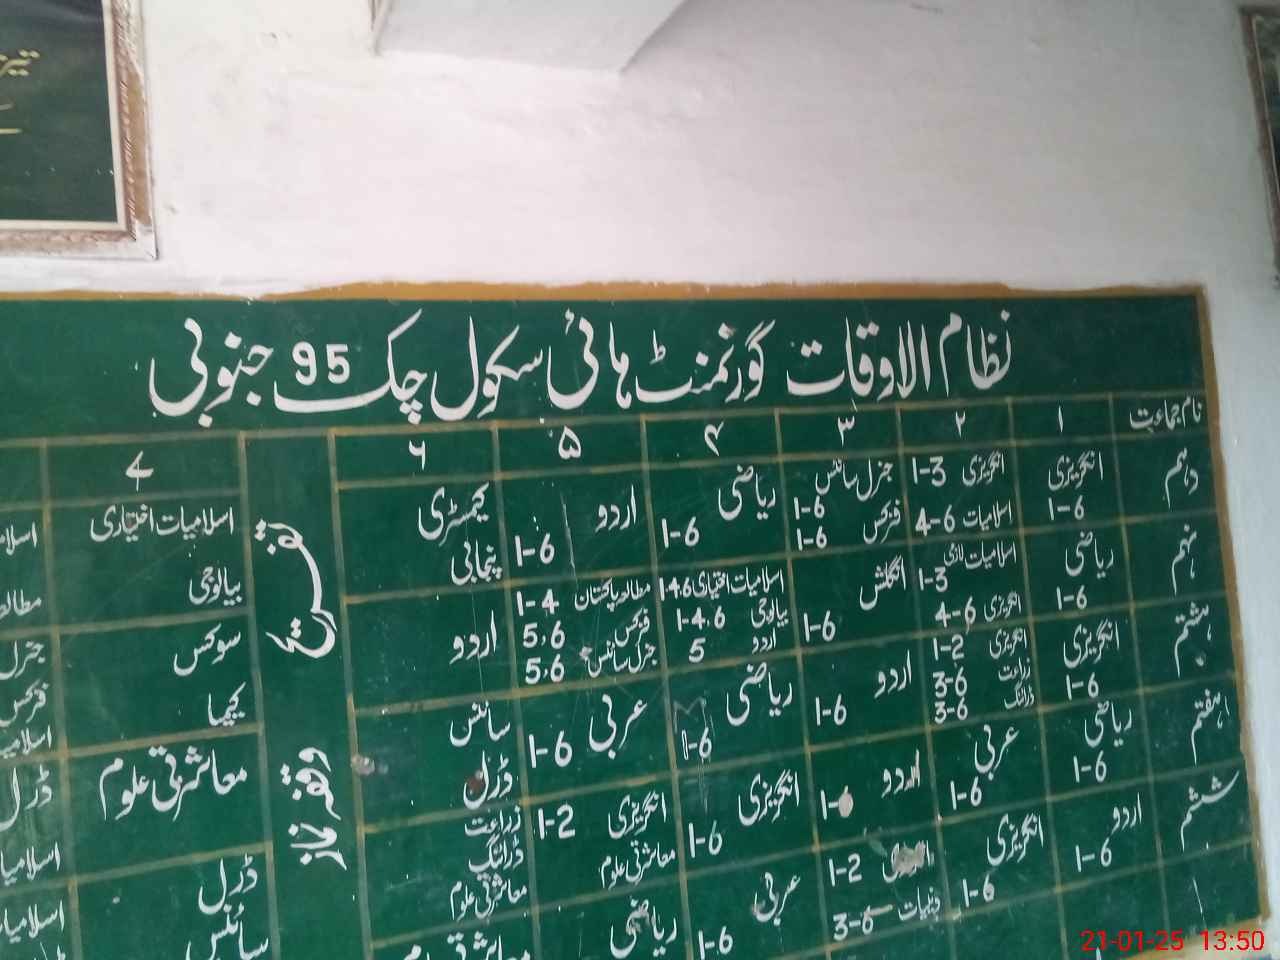 نظام الاوقات گورنمنٹ ہائی سکول چک 95 جنوبی
نام جماعت ۱ ۲ ۳ ۴ ۵ ۶ ۷
دہم
انگریزی 1-6
انگریزی 1-3
اسلامیات 4-6
جنرل سائنس 1-6
فزکس 1-6
ریاضی 1-6
اردو 1-6
کیمسٹری
پنجابی
اسلامیات اختیاری
بیالوجی
نہم
ریاضی 1-6
اسلامیات لازمی 1-3
انگریزی 4-6
انگلش 1-6
اسلامیات اختیاری 1-4,6
بیالوجی 1-4,6
اردو 5
مطالعہ پاکستان 1-4
فزکس 5,6
جنرل سائنس 5,6
اردو
سوکس
کیمیا
ہشتم
انگریزی 1-6
انگریزی 1-2
زراعت 3-6
ڈرائنگ 3-6
اردو 1-6
ریاضی 1-6
عربی 1-6
سائنس
ڈرل
معاشرتی علوم
ہفتم
ریاضی 1-6
عربی 1-6
اردو
انگریزی 1-6
انگریزی 1-2
معاشرتی علوم
زراعت
ڈرائنگ
معاشرتی علوم
ڈرل
سائنس
ششم
اردو 1-6
انگریزی 1-6
1-2
دینیات 3-6
عربی 1-6
ریاضی
معاشرتی علوم
تفریح
وقفہ نماز
ڈرل
21-01-25 13:50